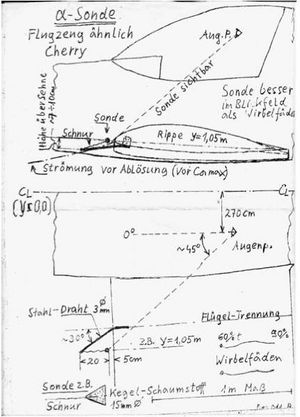 α-Sonde
Flugzeug ähnlich
Cherry
Aug.P.
Sonde sichtbar
Sonde besser
im Blickfeld
als Wirbelfäden
Höhe über Sehne
~7÷10cm
Sonde
Schnur
Rippe y=1,05m
Strömung vor Ablösung (vor Camax)
CL
(y=0,0)
CL
270cm
0°
~45°
Augenp.
Stahl-Draht 3mm Ø
~30°
Flügel-Trennung
z.B. y=1,05m
60%t
90%
Wirbelfäden
20
5cm
Sonde z.B.
Kegel-Schaumstoff
1m Maß
Schnur
15mm Ø